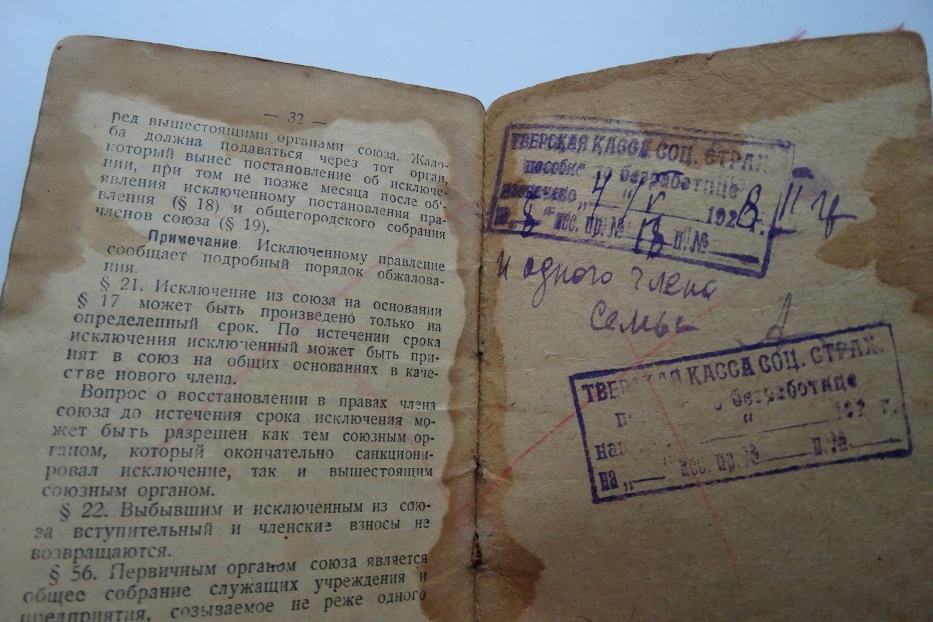 — 32 —
ред вышестоящими органами союза. Жало-
ба должна подаваться через тот орган,
который вынес постановление об исключе-
нии, при том не позже месяца после объ-
явления исключенному постановления пра-
вления (§ 18) и общегородского собрания
членов союза (§ 19).
Примечание. Исключенному правление
сообщает подробный порядок обжалова-
ния.
§ 21. Исключение из союза на основании
§ 17 может быть произведено только на
определенный срок. По истечении срока
исключения исключенный может быть при-
нят в союз на общих основаниях в каче-
стве нового члена.
Вопрос о восстановлении в правах члена
союза до истечения срока исключения мо-
жет быть разрешен как тем союзным ор-
ганом, который окончательно санкциони-
ровал исключение, так и вышестоящим
союзным органом.
§ 22. Выбывшим и исключенным из сою-
за вступительный и членские взносы не
возвращаются.
§ 56. Первичным органом союза является
общее собрание служащих учреждения и
предприятия, созываемое не реже одного
ТВЕРСКАЯ КАССА СОЦ. СТРАХ.
пособие безработице
192 г.
мес. пр. № п. №
и одного члена
семьи
ТВЕРСКАЯ КАССА СОЦ. СТРАХ.
безработице
" г.
на „ мес. пр. № п. №